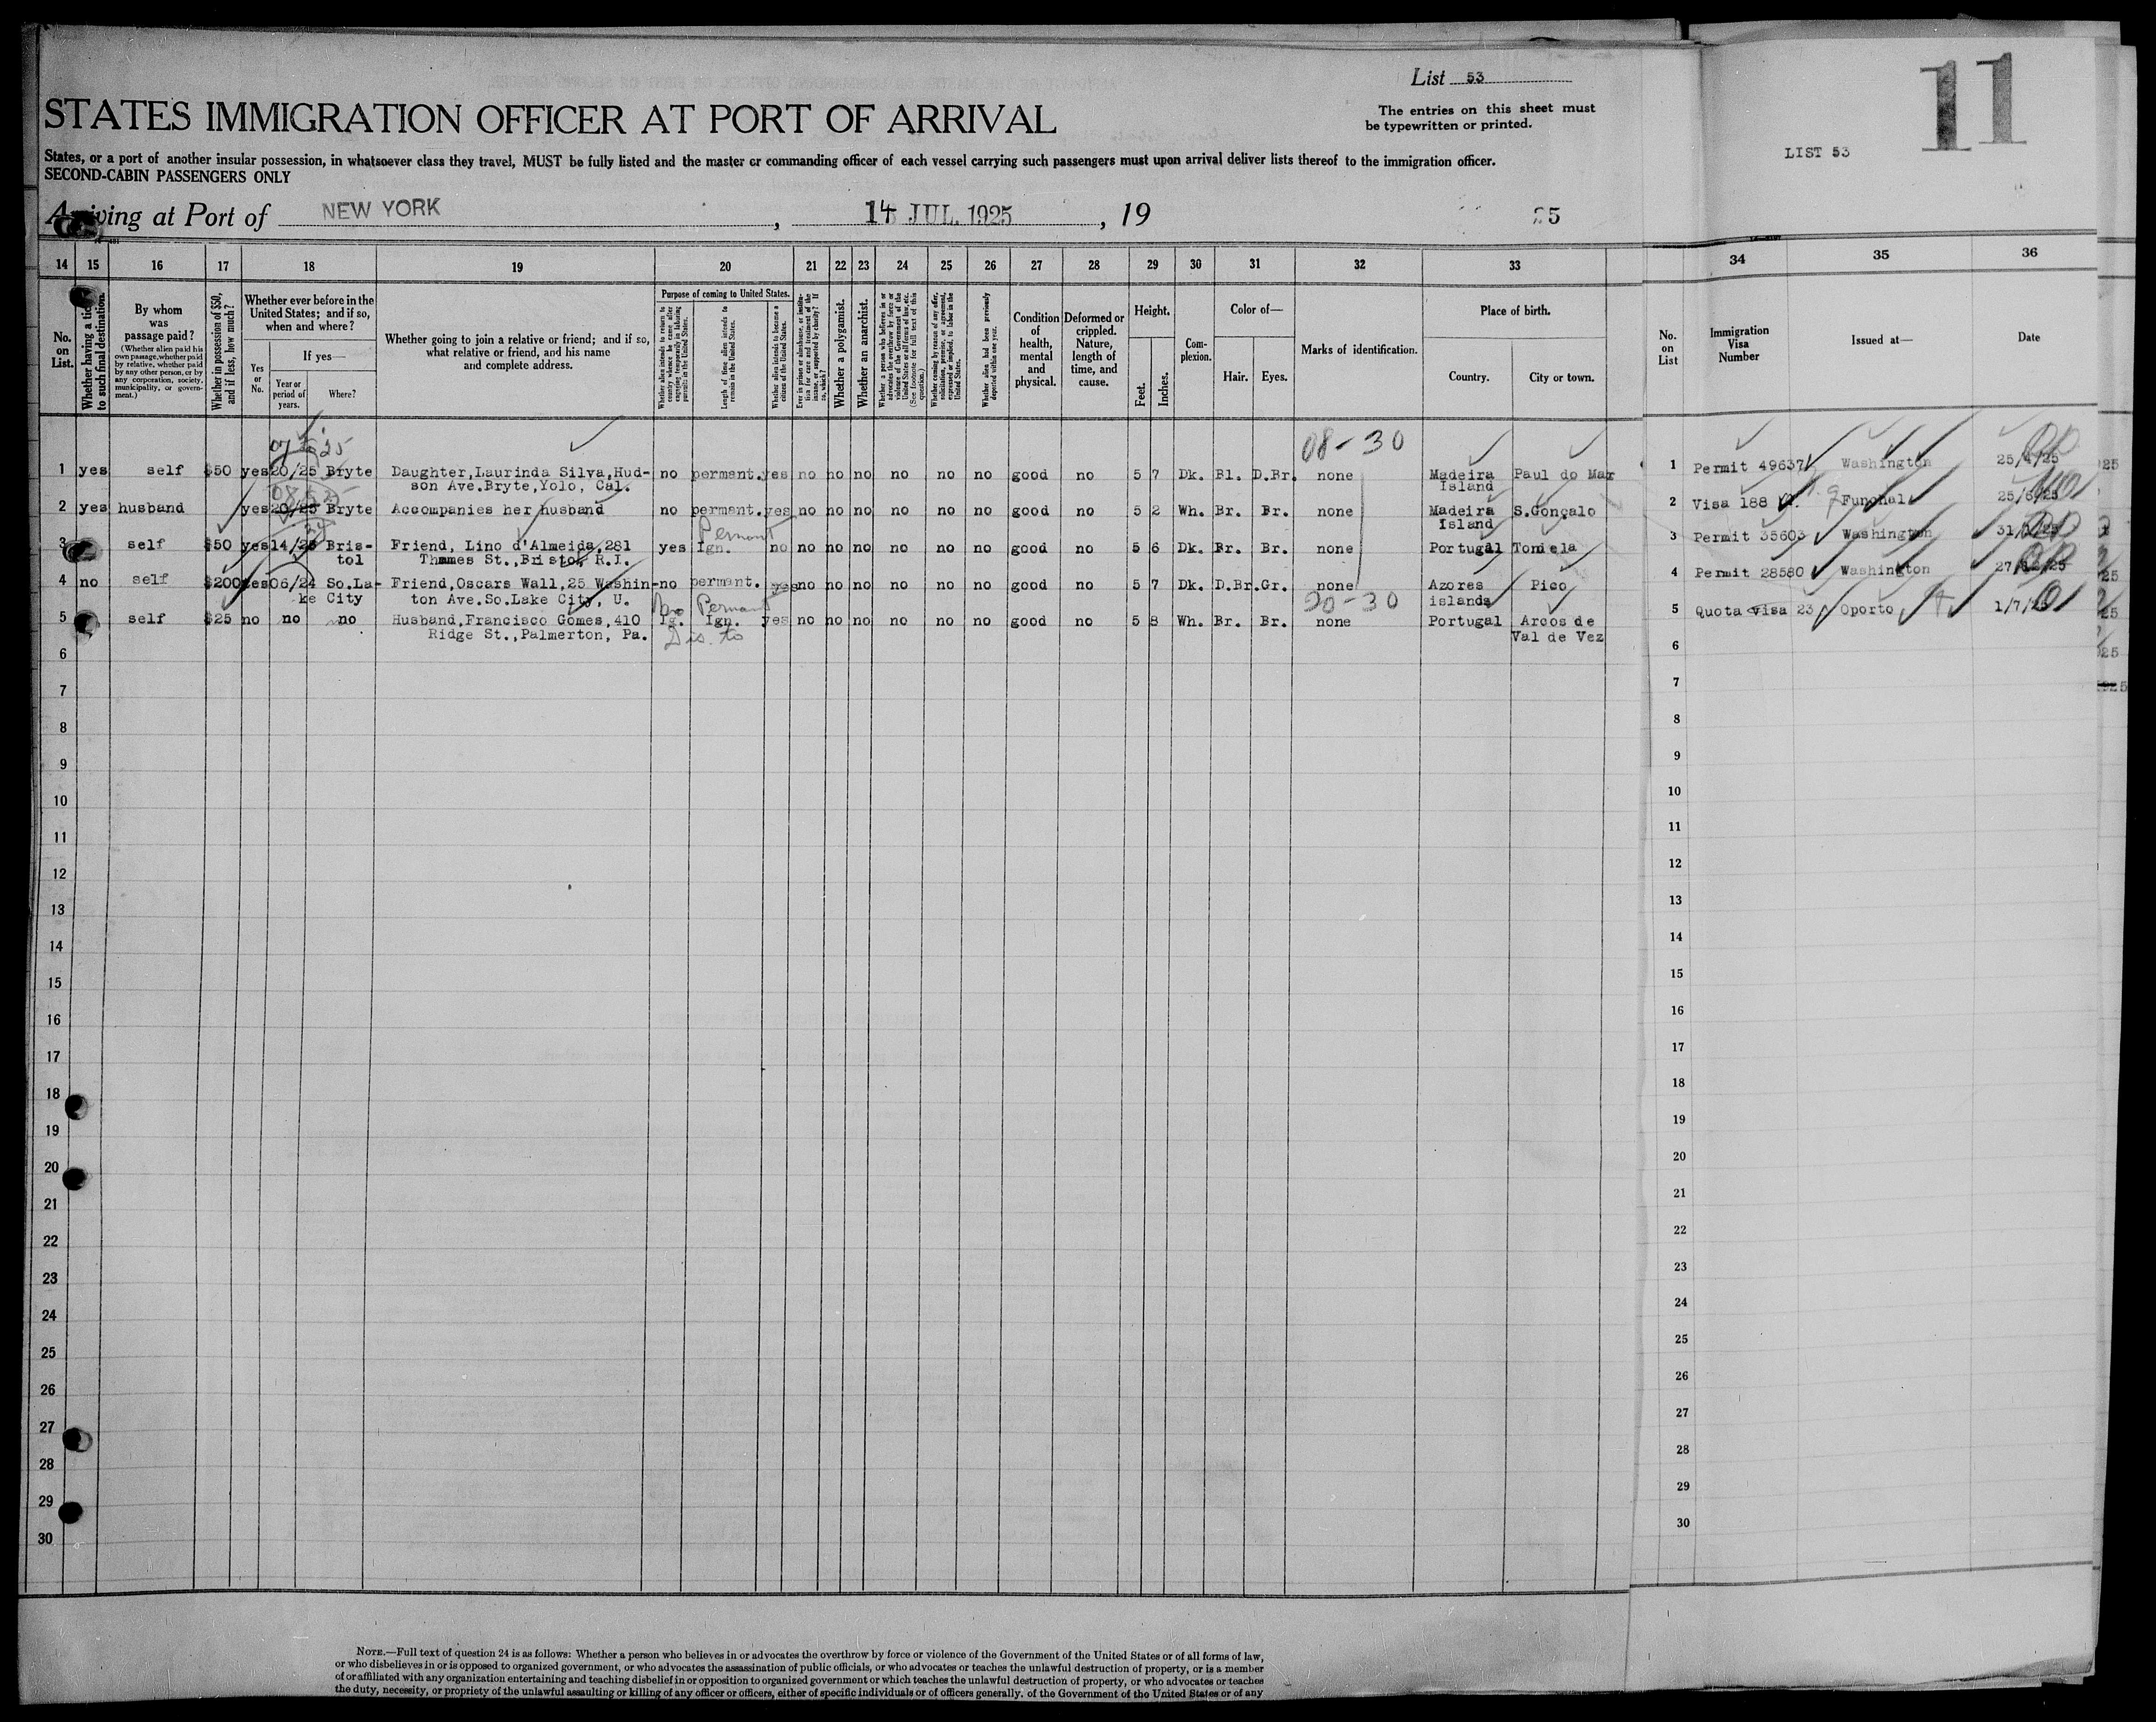 List 53
The entries on this sheet must
be typewritten or printed.
11
LIST 53
STATES IMMIGRATION OFFICER AT PORT OF ARRIVAL
States, or a port of another insular possession, in whatsoever class they travel, MUST be fully listed and the master or commanding officer of each vessel carrying such passengers must upon arrival deliver lists thereof to the immigration officer.
SECOND-CABIN PASSENGERS ONLY
Arriving at Port of NEW YORK , 14 JUL. 1925 , 19 25
14 15 16 17 18 19 20 21 22 23 24 25 26 27 28 29 30 31 32 33 34 35 36
No. on List.
Whether having a ticket to such final destination.
By whom was passage paid?
(Whether alien paid his own passage, whether paid by relative, whether paid by any other person, or by any corporation, society, municipality, or government.)
Whether in possession of $50, and if less, how much?
Whether ever before in the United States; and if so, when and where?
Yes or No.
If yes—
Year or period of years.
Where?
Whether going to join a relative or friend; and if so, what relative or friend, and his name and complete address.
Purpose of coming to United States.
Whether alien intends to return to country whence he came after engaging temporarily in laboring pursuits in the United States.
Length of time alien intends to remain in the United States.
Whether alien intends to become a citizen of the United States.
Whether a polygamist.
Whether an anarchist.
Whether coming by reason of any offer, solicitation, promise, or agreement, expressed or implied, to labor in the United States.
Whether alien had been previously deported within one year.
Condition of health, mental and physical.
Deformed or crippled. Nature, length of time, and cause.
Height.
Feet.
Inches.
Complexion.
Color of—
Hair.
Eyes.
Marks of identification.
Place of birth.
Country.
City or town.
No. on List
Immigration Visa Number
Issued at—
Date
08-30
1 yes self $50 yes 20/25 Bryte Daughter, Laurinda Silva, Hud- no permant. yes no no no no no no good no 5 7 Dk. Bl. D.Br. none Madeira Paul do Mar 1 Permit 49637 Washington 25/4/25
son Ave. Bryte, Yolo, Cal. Island
2 yes husband yes 20/25 Bryte Accompanies her husband no permant. yes no no no no no no good no 5 2 Wh. Br. Br. none Madeira S.Gonçalo 2 Visa 188 Funchal 25/6/25
Island
Permant
3 self $50 yes 14/25 Bris- Friend, Lino d'Almeida, 281 yes Ign. no no no no no no no good no 5 6 Dk. Br. Br. none Portugal Tondela 3 Permit 35603 Washington
tol Thames St., Bristol, R.I.
4 no self $200 yes 06/24 So.La- Friend, Oscars Wall, 25 Washin- no permant. yes no no no no no no good no 5 7 Dk. D.Br. Gr. none Azores Pico 4 Permit 28580 Washington
ke City ton Ave. So. Lake City, U. islands
no Permant 20-30
5 self $25 no no no Husband, Francisco Gomes, 410 Ig. Ign. yes no no no no no no good no 5 8 Wh. Br. Br. none Portugal Arcos de 5 Quota visa 23 Oporto 1/7/25
Ridge St., Palmerton, Pa. Val de Vez
6 6
7 7
8 8
9 9
10 10
11 11
12 12
13 13
14 14
15 15
16 16
17 17
18 18
19 19
20 20
21 21
22 22
23 23
24 24
25 25
26 26
27 27
28 28
29 29
30 30
NOTE.—Full text of question 24 is as follows: Whether a person who believes in or advocates the overthrow by force or violence of the Government of the United States or of all forms of law,
or who disbelieves in or is opposed to organized government, or who advocates the assassination of public officials, or who advocates or teaches the unlawful destruction of property, or is a member
of or affiliated with any organization entertaining and teaching disbelief in or opposition to organized government or which teaches the unlawful destruction of property, or who advocates or teaches
the duty, necessity, or propriety of the unlawful assaulting or killing of any officer or officers, either of specific individuals or of officers generally, of the Government of the United States or of any